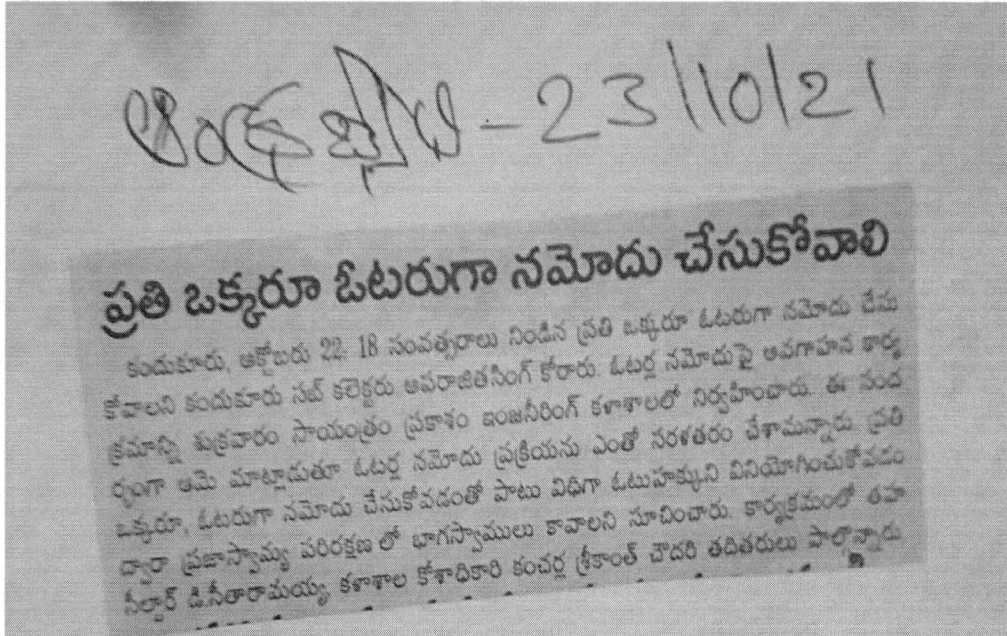 ఆంధ్రజ్యోతి - 23/10/21
ప్రతి ఒక్కరూ ఓటరుగా నమోదు చేసుకోవాలి
కందుకూరు, అక్టోబరు 22: 18 సంవత్సరాలు నిండిన ప్రతి ఒక్కరూ ఓటరుగా నమోదు చేసు
కోవాలని కందుకూరు సబ్ కలెక్టరు అపరాజితసింగ్ కోరారు. ఓటర్ల నమోదుపై అవగాహన కార్య
క్రమాన్ని శుక్రవారం సాయంత్రం ప్రకాశం ఇంజనీరింగ్ కళాశాలలో నిర్వహించారు. ఈ సంద
ర్భంగా ఆమె మాట్లాడుతూ ఓటర్ల నమోదు ప్రక్రియను ఎంతో సరళతరం చేశామన్నారు. ప్రతి
ఒక్కరూ, ఓటరుగా నమోదు చేసుకోవడంతో పాటు విధిగా ఓటుహక్కుని వినియోగించుకోవడం
ద్వారా ప్రజాస్వామ్య పరిరక్షణలో భాగస్వాములు కావాలని సూచించారు. కార్యక్రమంలో తహ
సీల్దార్ డి.సీతారామయ్య, కళాశాల కోశాధికారి కంచర్ల శ్రీకాంత్ చౌదరి తదితరులు పాల్గొన్నారు.